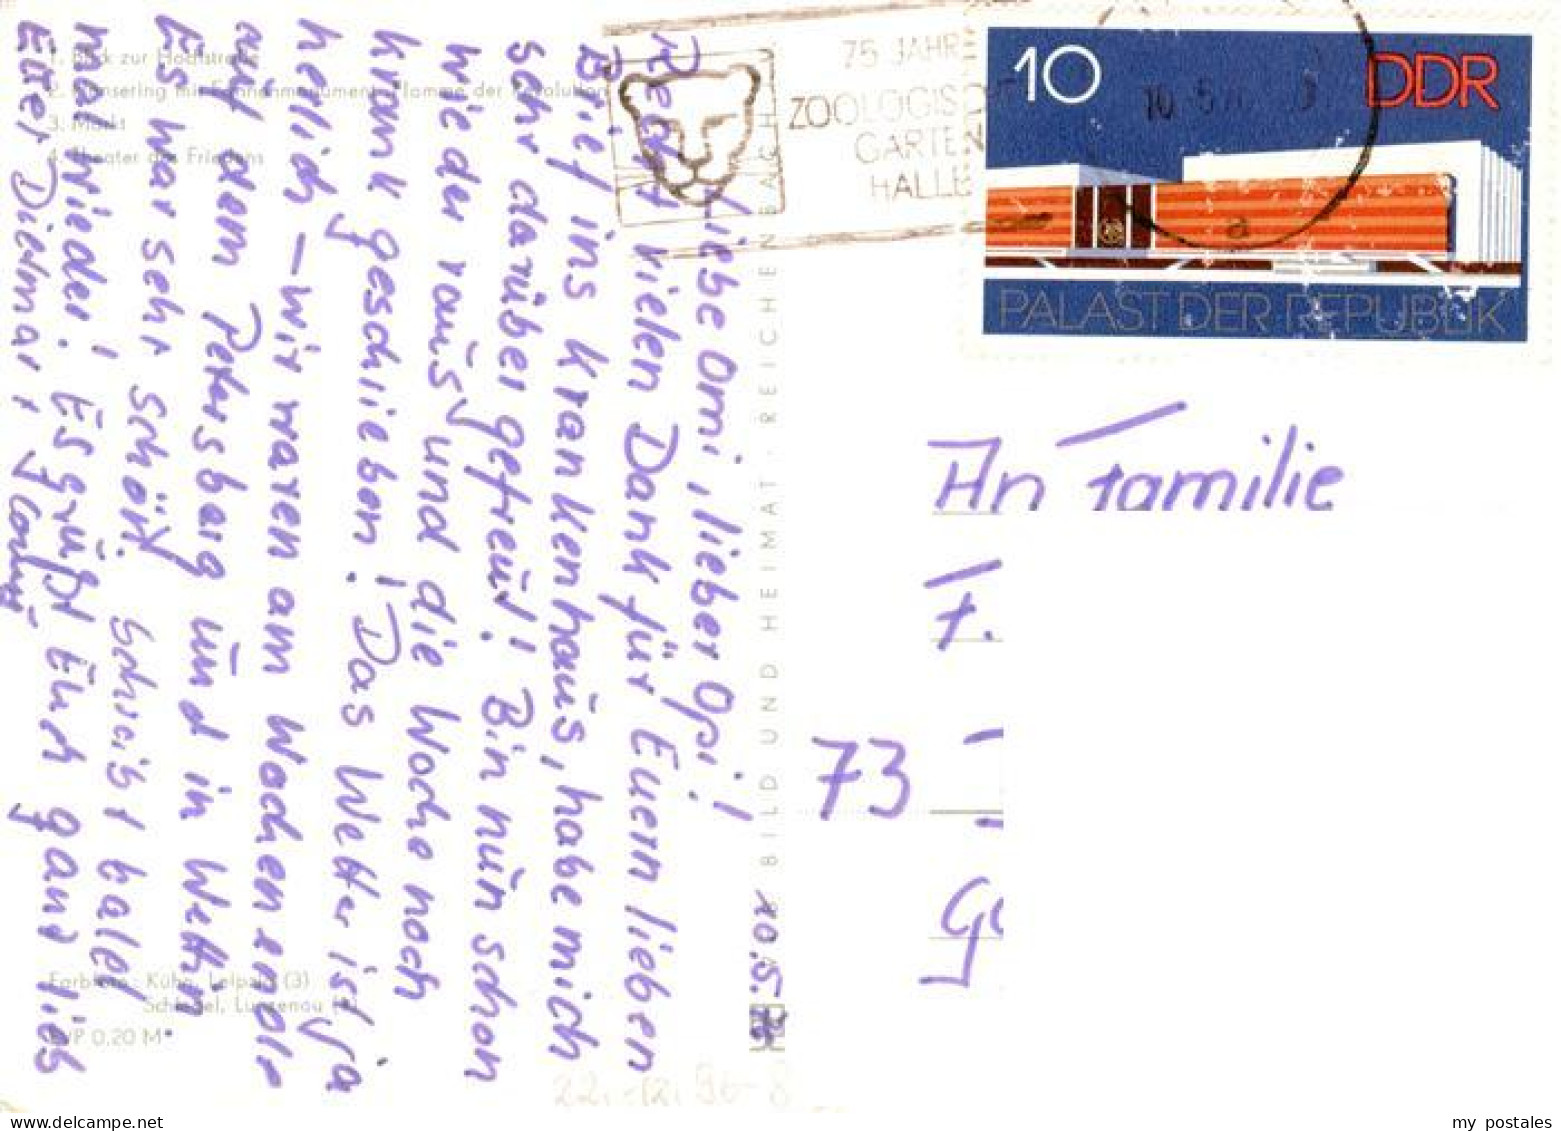 1. Blick zur Hochstraße
2. Hansering mit Fahnenmonument „Flamme der Revolution“
3. Markt
4. Theater des Friedens
Liebe Omi, lieber Opi!
Recht vielen Dank für Euern lieben
Brief ins Krankenhaus, habe mich
sehr darüber gefreut! Bin nun schon
wieder raus und die Woche noch
krank geschrieben! Das Wetter ist ja
herlich – wir waren am Wochenende
auf dem Petersberg und in Wettin
Es war sehr schön. Schreibt bald
mal wieder! Es grüßt Euch ganz lieb
Eure Dietmar,
10.5.
Farbfotos: Kühn, Leipzig (3)
Schlegel, Lunzenau (1)
EVP 0,20 M
BILD UND HEIMAT · REICHENBACH
75 JAHRE
ZOOLOGISCH
GARTEN
HALLE
10 DDR
PALAST DER REPUBLIK
An Familie
F.
73
22.-12.
my postales